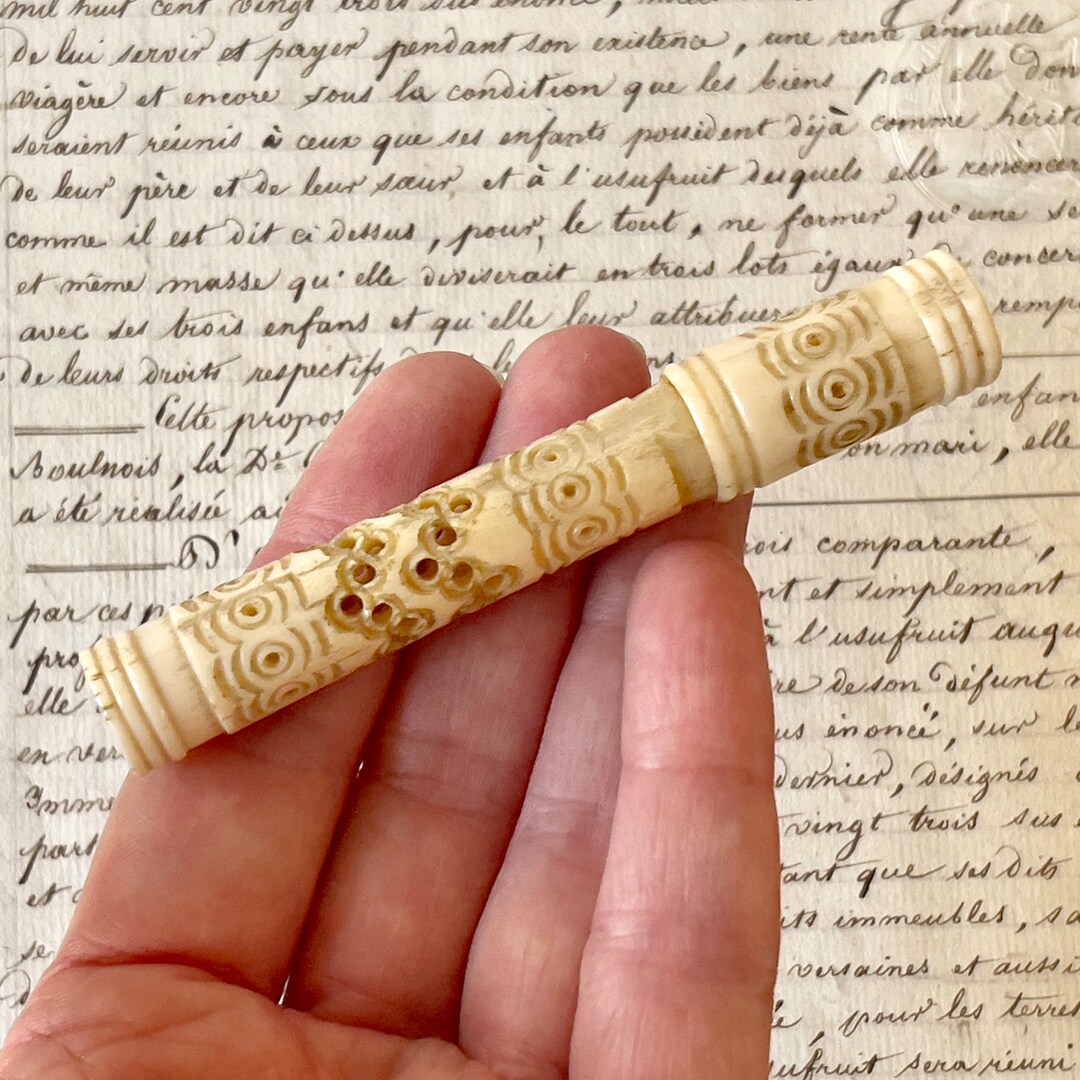 mil huit cent vingt trois sus énoncé,
de lui servir et payer pendant son existence, une rente annuelle
viagère et encore sous la condition que les biens par elle don
seraient réunis à ceux que ses enfants possèdent déjà comme hérit
de leur père et de leur sœur, et à l'usufruit desquels elle renoncer
comme il est dit ci dessus, pour, le tout, ne former qu'une se
et même masse qu'elle diviserait en trois lots égaux concer
avec ses trois enfans et qu'elle leur attribuer remp
de leurs droits respectifs
enfan
Cette propos
Boulnois, la De on mari, elle
a été réalisée
D' ois comparante,
par ces nt et simplement
à l'usufruit auqu
elle re de son défunt m
en ver us énoncé, sur le
Imme dernier, désignés
part vingt trois sus
et tant que ses dits
its immeubles, sa
se versaines et aussi
, pour les terres
ufruit sera réuni